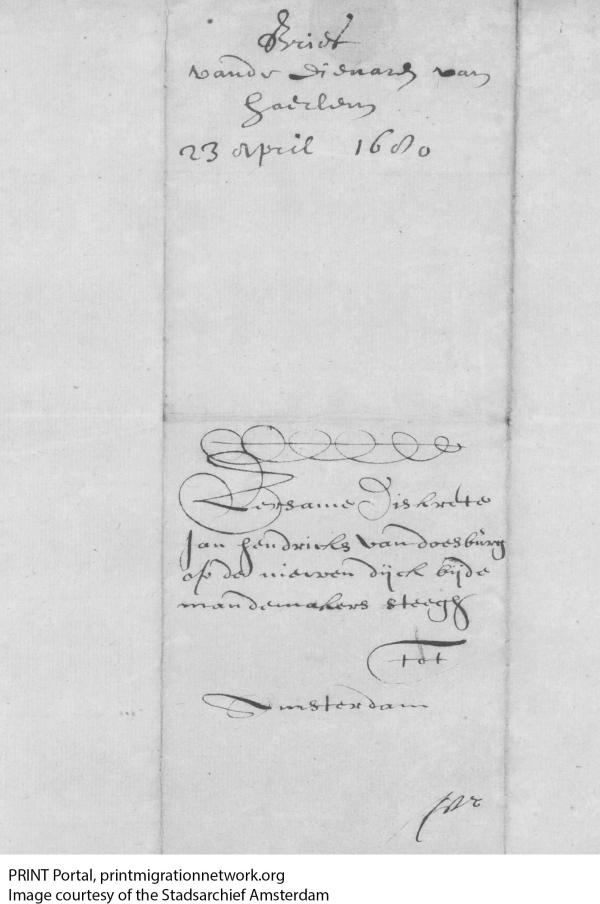 Brief
vande dienaren van
haerlem
23 april 1680
Eersame Diskrete
Jan hendricks van doesburg
op de nieuwen dijck bijde
mandemakers steegh
tot
Amsterdam
PRINT Portal, printmigrationnetwork.org
Image courtesy of the Stadsarchief Amsterdam